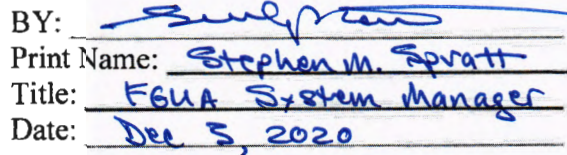 BY:
Print Name: Stephen M. Spratt
Title: FGUA System Manager
Date: Dec 3, 2020